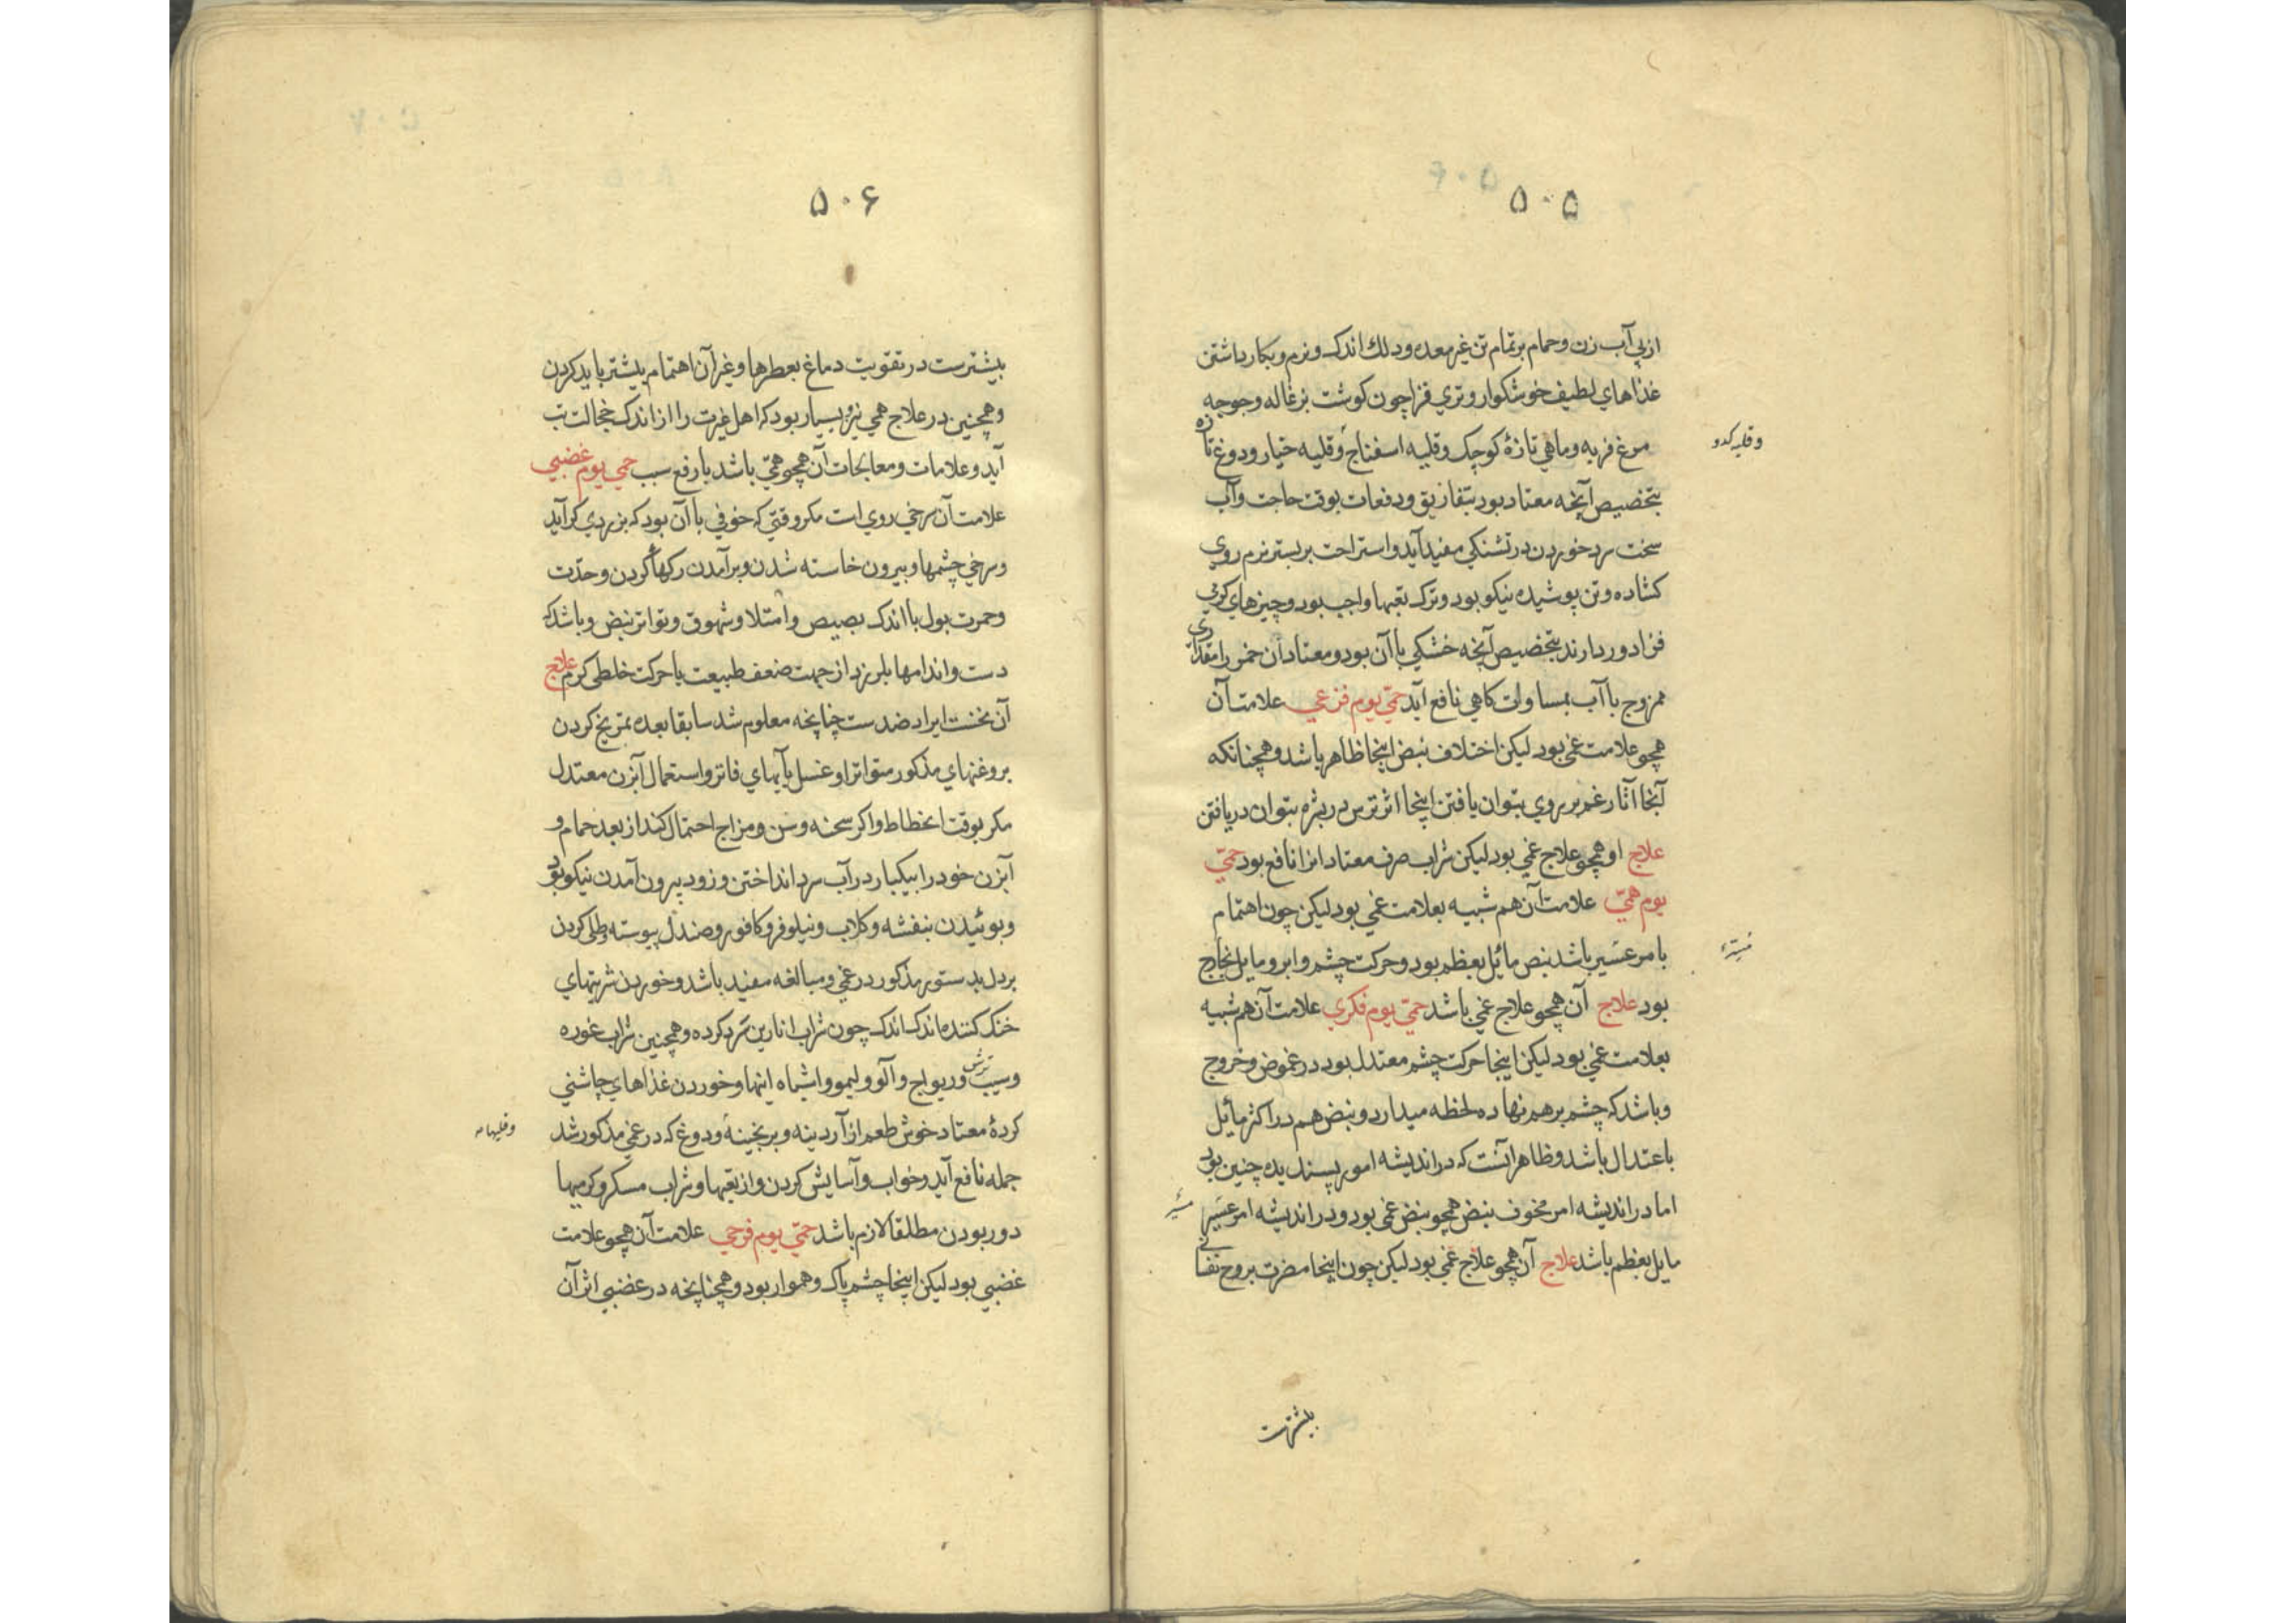 ۵۰۵
ازپی آب زن و حمام بر تمام تن غیر معده و دلك اندک و نرم و بکار داشتن
غذاهای لطیف خوشکوار و تری فزا چون کوشت بزغاله و جوجه
مرغ فربه و ماهی تازهٔ کوچک و قلیه اسفناج و قلیه خیار و دوغ تازه
وقلیه کدو
بتخصیص آنچه معتاد بود بتفاریق و دفعات بوقت حاجت و آب
سخت سرد خوردن در تشنکی مفید آید و استراحت بر بستر نرم روی
کشاده و تن پوشیده نیکو بود و ترک تعبها واجب بود و چیزهای کرمی
فزا دور دارند بتخصیص آنچه خشکی با آن بود و معتاد آن خمر را مقداری
ممزوج با آب بمساوات کاهی نافع آید حمّی یوم فزعی علامت آن
همچو علامت غمی بود لیکن اختلاف نبض اینجا ظاهر باشد و همچنانکه
آنجا آثار غم بر روی بتوان یافتن اینجا اثر ترس در بشره بتوان دریافتن
علاج او همچو علاج غمی بود لیکن شراب صرف معتاد انرا نافع بود حمّی
یوم همّی علامت آن هم شبیه بعلامت غمی بود لیکن چون اهتمام
با مر عسیر باشد نبض مائل بعظم بود و حرکت چشم و ابرو مایل بخارج
بود علاج آن همچو علاج غمی باشد حمّی یوم فکری علامت آن هم شبیه
بعلامت غمی بود لیکن اینجا حرکت چشم معتدل بود در غموض و خروج
و باشد که چشم بر هم نهاده لحظه میدارد و نبض هم در اکثر مائل
باعتدال باشد و ظاهر آنست که در اندیشه امور پسندیده چنین بود
اما در اندیشه امر مخوف نبض همچو نبض غمی بود و در اندیشه امر عسیر
مایل بعظم باشد علاج آن همچو علاج غمی بود لیکن چون اینجا مضرت بروح نفسانی
بیشترست
۵۰۶
بیشترست در تقویت دماغ بعطرها و غیر آن اهتمام بیشتر باید کردن
و همچنین در علاج همی نیز و بسیار بود که اهل غیرت را از اندک خجالت تب
آید و علامات و معالجات آن همچو همّی باشد با رفع سبب حمی یوم غضبی
علامت آن سرخی روی است مکر وقتی که خوفی با آن بود که بزردی کراید
و سرخی چشمها و بیرون خاسته شدن و برآمدن رکهأ کردن و حدّت
و حمرت بول با اندک بصیص و امتلا و شهوق و تواتر نبض و باشد که
دست و اندامها بلرزد از جهت ضعف طبیعت یا حرکت خلطی کرم علاج
آن نخست ایراد ضدست چنانچه معلوم شد سابقا بعده تمریخ کردن
بروغنهای مذکور متواترا و غسل بآبهای فاتر و استعمال آبزن معتدل
مکر بوقت انحطاط و اکر سحنه و سن و مزاج احتمال کند از بعد حمام و
آبزن خود را بیکبار در آب سرد انداختن و زود بیرون آمدن نیکو بود
و بوئیدن بنفشه و کلاب و نیلوفر و کافور و صندل پیوسته و طلی کردن
بر دل بدستور مذکور در غمی و مبالغه مفید باشد و خوردن شربتهای
خنک کننده اندک اندک چون شراب انارین سرد کرده و همچنین شراب غوره
و سیب ترش و ریواج و آلو و لیمو و اشباه اینها و خوردن غذاهای چاشنی
کردهٔ معتاد خوش طعم از آردینه و برنجینه و دوغ که در غمی مذکور شد
وقلیها
جمله نافع آید و خواب و آسایش کردن و از تعبها و شراب مسکر و کرمیها
دور بودن مطلقا لازم باشد حمّی یوم فرحی علامت آن همچو علامت
غضبی بود لیکن اینجا چشم پاک و هموار بود و همچنانچه در غضبی اثر آن